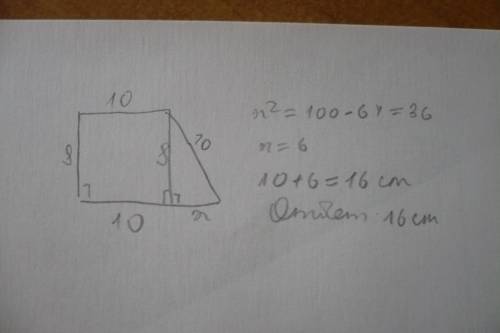 10
8
8
10
10
x
x² = 100 - 64 = 36
x = 6
10 + 6 = 16 cm
Ответ 16 cm